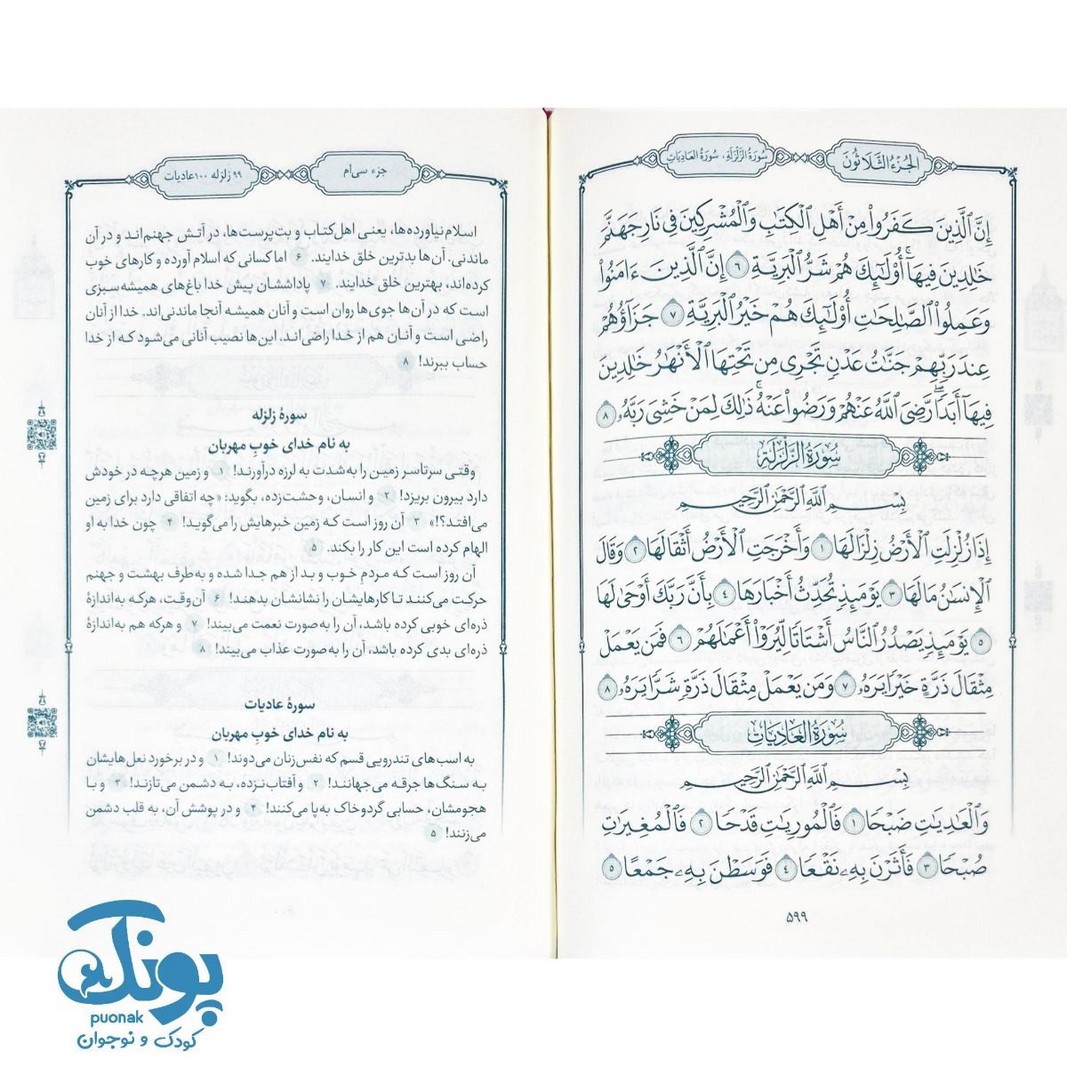 الجُزءُ الثَّلاثُونَ
سُورَةُ الزَّلزَلَةِ، سُورَةُ العَادِیَاتِ
إِنَّ ٱلَّذِينَ كَفَرُواْ مِنْ أَهْلِ ٱلْكِتَٰبِ وَٱلْمُشْرِكِينَ فِي نَارِ جَهَنَّمَ
خَٰلِدِينَ فِيهَآ أُوْلَٰٓئِكَ هُمْ شَرُّ ٱلْبَرِيَّةِ ٦ إِنَّ ٱلَّذِينَ ءَامَنُواْ
وَعَمِلُواْ ٱلصَّٰلِحَٰتِ أُوْلَٰٓئِكَ هُمْ خَيْرُ ٱلْبَرِيَّةِ ٧ جَزَآؤُهُمْ
عِندَ رَبِّهِمْ جَنَّٰتُ عَدْنٍ تَجْرِي مِن تَحْتِهَا ٱلْأَنْهَٰرُ خَٰلِدِينَ
فِيهَآ أَبَدًا رَّضِيَ ٱللَّهُ عَنْهُمْ وَرَضُواْ عَنْهُ ذَٰلِكَ لِمَنْ خَشِيَ رَبَّهُۥ ٨
سُورَةُ الزَّلْزَلَةِ
بِسْمِ ٱللَّهِ ٱلرَّحْمَٰنِ ٱلرَّحِيمِ
إِذَا زُلْزِلَتِ ٱلْأَرْضُ زِلْزَالَهَا ١ وَأَخْرَجَتِ ٱلْأَرْضُ أَثْقَالَهَا ٢ وَقَالَ
ٱلْإِنسَٰنُ مَا لَهَا ٣ يَوْمَئِذٍ تُحَدِّثُ أَخْبَارَهَا ٤ بِأَنَّ رَبَّكَ أَوْحَىٰ لَهَا
٥ يَوْمَئِذٍ يَصْدُرُ ٱلنَّاسُ أَشْتَاتًا لِّيُرَوْاْ أَعْمَٰلَهُمْ ٦ فَمَن يَعْمَلْ
مِثْقَالَ ذَرَّةٍ خَيْرًا يَرَهُۥ ٧ وَمَن يَعْمَلْ مِثْقَالَ ذَرَّةٍ شَرًّا يَرَهُۥ ٨
سُورَةُ العَادِیَاتِ
بِسْمِ ٱللَّهِ ٱلرَّحْمَٰنِ ٱلرَّحِيمِ
وَٱلْعَٰدِيَٰتِ ضَبْحًا ١ فَٱلْمُورِيَٰتِ قَدْحًا ٢ فَٱلْمُغِيرَٰتِ
صُبْحًا ٣ فَأَثَرْنَ بِهِۦ نَقْعًا ٤ فَوَسَطْنَ بِهِۦ جَمْعًا ٥
۵۹۹
جزء سی‌ام
۹۹ زلزله ۱۰۰ عادیات
اسلام نیاورده‌ها، یعنی اهل کتاب و بت‌پرست‌ها، در آتش جهنم‌اند و در آن
ماندنی. آن‌ها بدترین خلق خدایند. ۶ اما کسانی که اسلام آورده و کارهای خوب
کرده‌اند، بهترین خلق خدایند. ۷ پاداششان پیش خدا باغ‌های همیشه سبزی
است که در آن‌ها جوی‌ها روان است و آنان همیشه آنجا ماندنی‌اند. خدا از آنان
راضی است و آنان هم از خدا راضی‌اند، این‌ها نصیب آنانی می‌شود که از خدا
حساب ببرند! ۸
سورهٔ زلزله
به نام خدای خوبِ مهربان
وقتی سرتاسر زمین را به‌شدت به لرزه درآورند! ۱ و زمین هرچه در خودش
دارد بیرون بریزد! ۲ و انسان، وحشت‌زده، بگوید: «چه اتفاقی دارد برای زمین
می‌افتد؟!» ۳ آن روز است که زمین خبرهایش را می‌گوید! ۴ چون خدا به او
الهام کرده است این کار را بکند. ۵
آن روز است که مردم خوب و بد از هم جدا شده و به‌طرف بهشت و جهنم
حرکت می‌کنند تا کارهایشان را نشانشان بدهند! ۶ آن‌وقت، هرکه به‌اندازهٔ
ذره‌ای خوبی کرده باشد، آن را به‌صورت نعمت می‌بیند! ۷ و هرکه هم به‌اندازهٔ
ذره‌ای بدی کرده باشد، آن را به‌صورت عذاب می‌بیند! ۸
سورهٔ عادیات
به نام خدای خوبِ مهربان
به اسب‌های تندرویی قسم که نفس‌زنان می‌دوند! ۱ و در برخورد نعل‌هایشان
به سنگ‌ها جرقه می‌جهانند! ۲ و آفتاب نزده، به دشمن می‌تازند! ۳ و با
هجومشان، حسابی گردوخاک به‌پا می‌کنند! ۴ و در پوشش آن، به قلب دشمن
می‌زنند! ۵
پونک
puonak
کودک و نوجوان